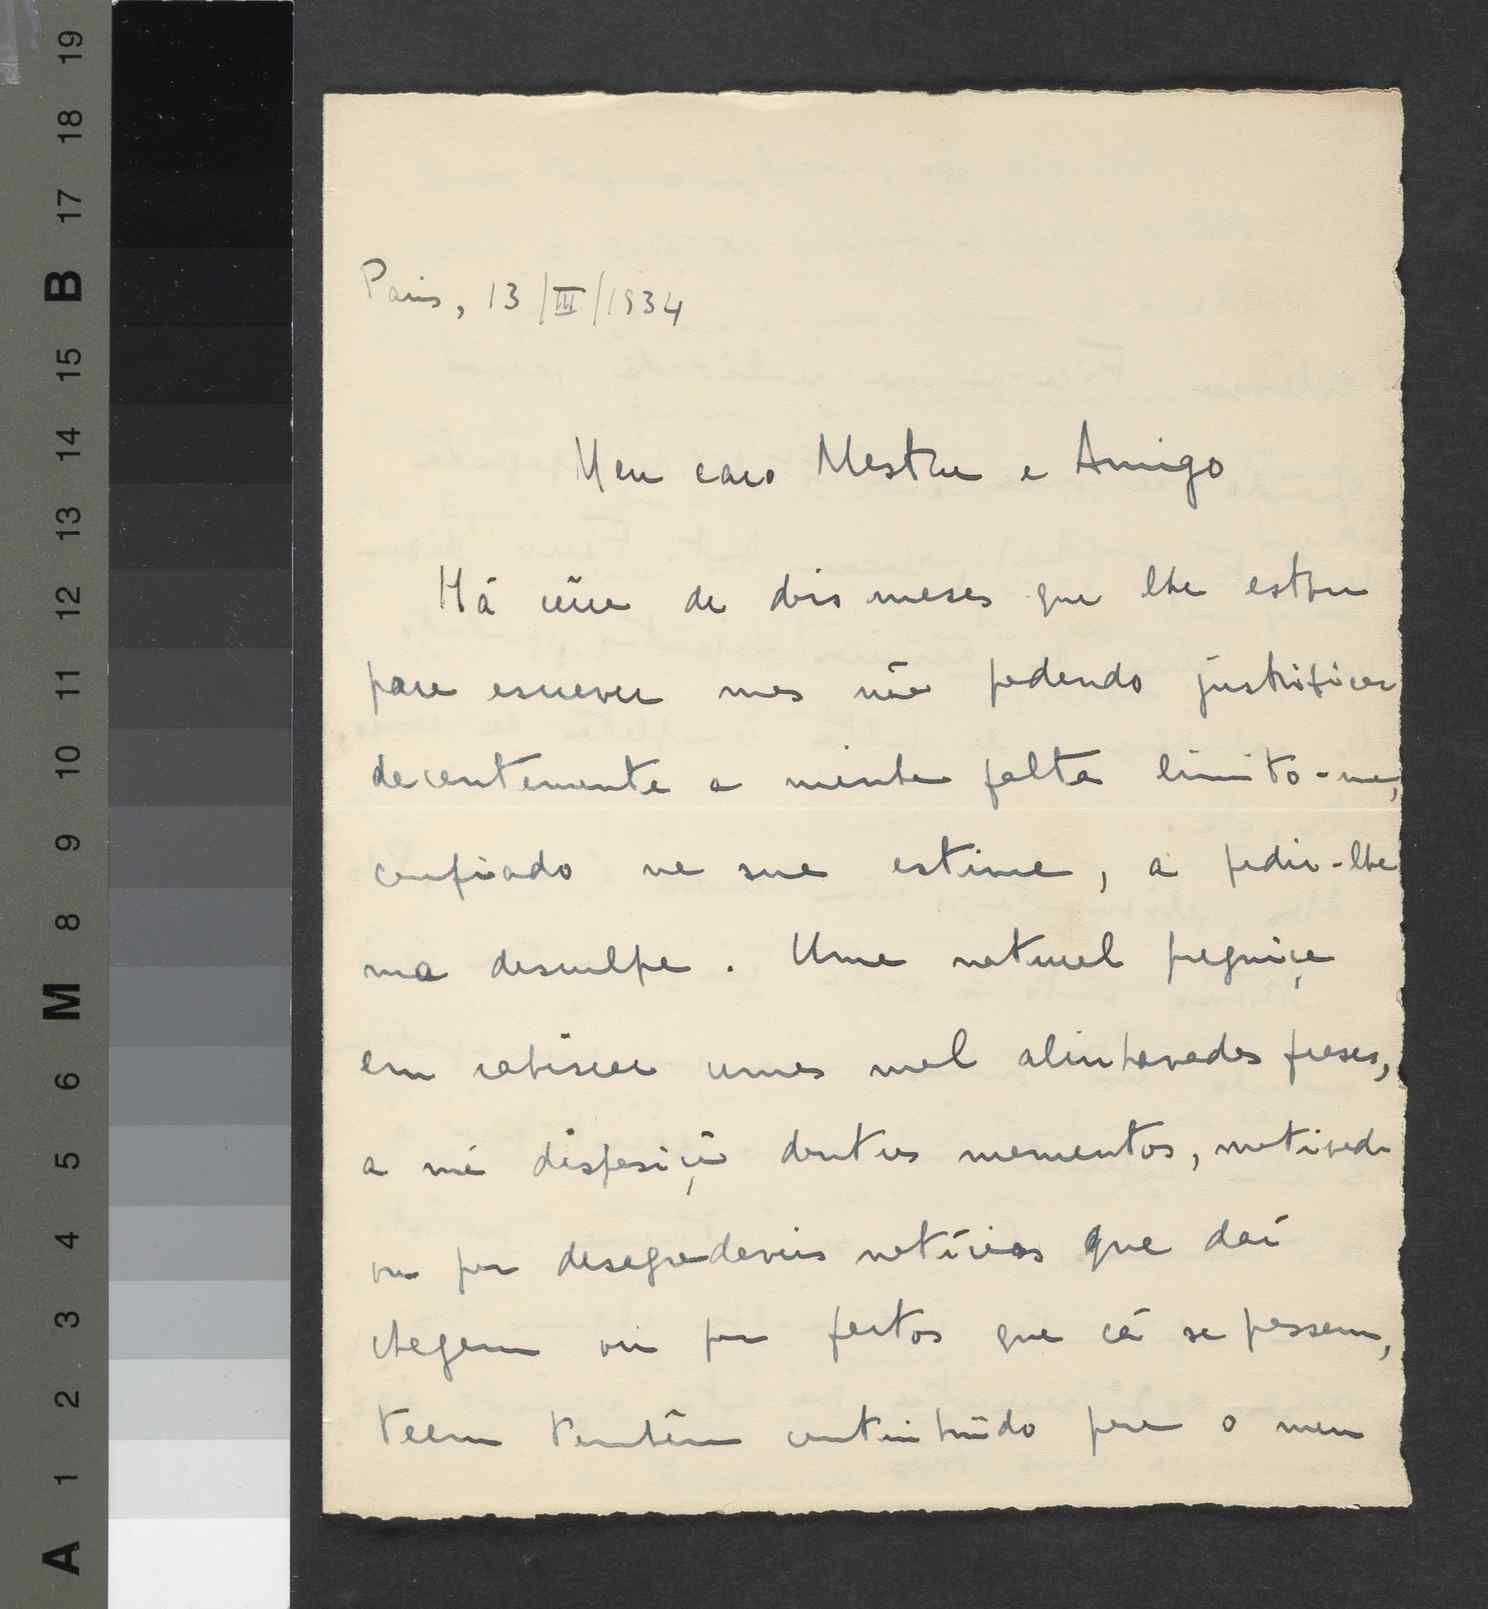 19
18
17
B
15
14
13
12
11
10
9
8
M
6
5
4
3
2
1
A
Paris, 13/III/1934
Meu caro Mestre e Amigo
Há de dois meses que lhe estou
para escrever mas não podendo justificar
decentemente a minha falta limito-me,
confiado na sua estima, a pedir-lhe
ma desculpe. Uma natural preguiça
em rabiscar umas mal alinhavadas frases,
a má disposição doutros momentos, motivada
ou por desagradaveis notícias que daí
chegam ou por factos que cá se passam,
teem tambêm contribuído para o meu